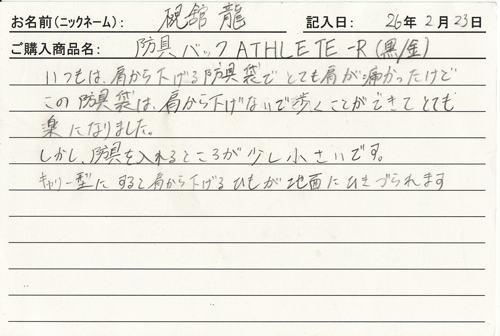 お名前(ニックネーム): 硯舘 龍 記入日: 26年 2月 23日
ご購入商品名: 防具バック ATHLETE-R(黒/金)
いつもは、肩から下げる防具袋でとても肩が痛かったけど
この防具袋は、肩から下げないで歩くことができてとても
楽になりました。
しかし、防具を入れるところが少し小さいです。
キャリー型にすると肩から下げるひもが地面にひきづられます